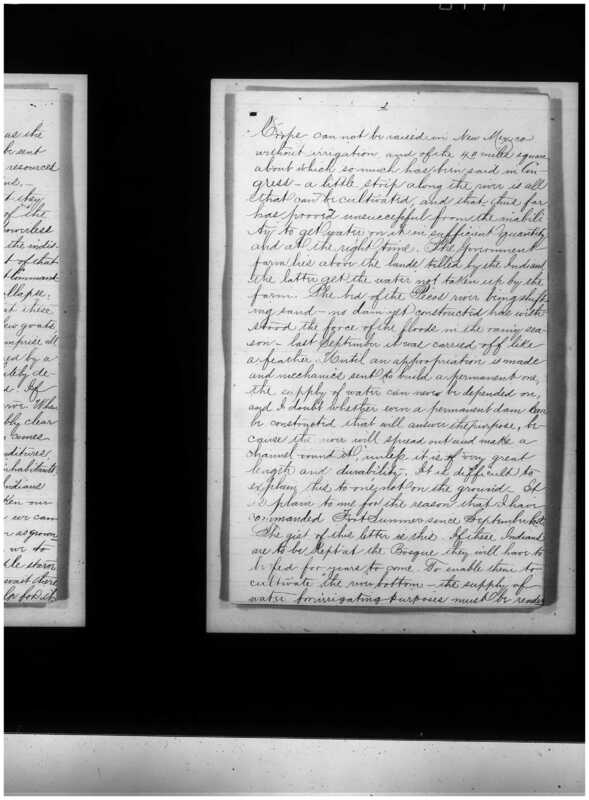 as she
be sent
resources
it they
of the
powerless
the indis
t of that
Command
llapse,
at these
few goats,
omprise all
ed by a
tely de
d. If
bly clear
comes
ditures,
nhabitants
Indians
ken our
we can
or as grown
we to
ble starva
must there
for it
2
Crops can not be raised in New Mexico
without irrigation, and of the 40 miles square
about which so much has been said in Con
gress - a little strip along the river is all
that can be cultivated, and that, thus far
has proved unsuccessful from the inabili
ty to get water on it in sufficient quantity
and at the right time. The Government
farm lies above the lands tilled by the Indians,
the latter get the water not taken up by the
farm. The bed of the Pecos river being shift
ing sand - no dam yet constructed has with
stood the force of the floods in the rainy sea
son - last September it was carried off like
a feather. Until an appropriation is made
and mechanics sent to build a permanent one,
the supply of water can never be depended on,
and I doubt whether even a permanent dam can
be constructed that will answer the purpose, be
cause the river will spread out and make a
channel round it, unless it is of very great
length and durability. It is difficult to
explain this to one not on the ground. It
is plain to me for the reason that I have
commanded Fort Sumner since September last.
The gist of this letter is this. If these Indians
are to be kept at the Bosque they will have to
be fed for years to come. To enable them to
cultivate the river bottom - the supply of
water for irrigating purposes must be render